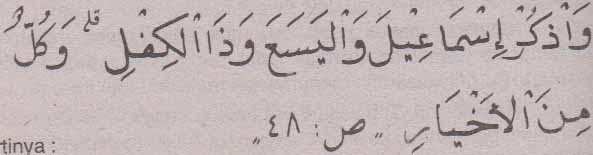 وَاْذْكُرْ إِسْمَاعِيْلَ وَاْليَسَعَ وَذَااْلكِفْلِ ۗ وَكُلٌّ
مِنَ اْلأَخْيَارِ „ ص : ٤٨ „
tinya :